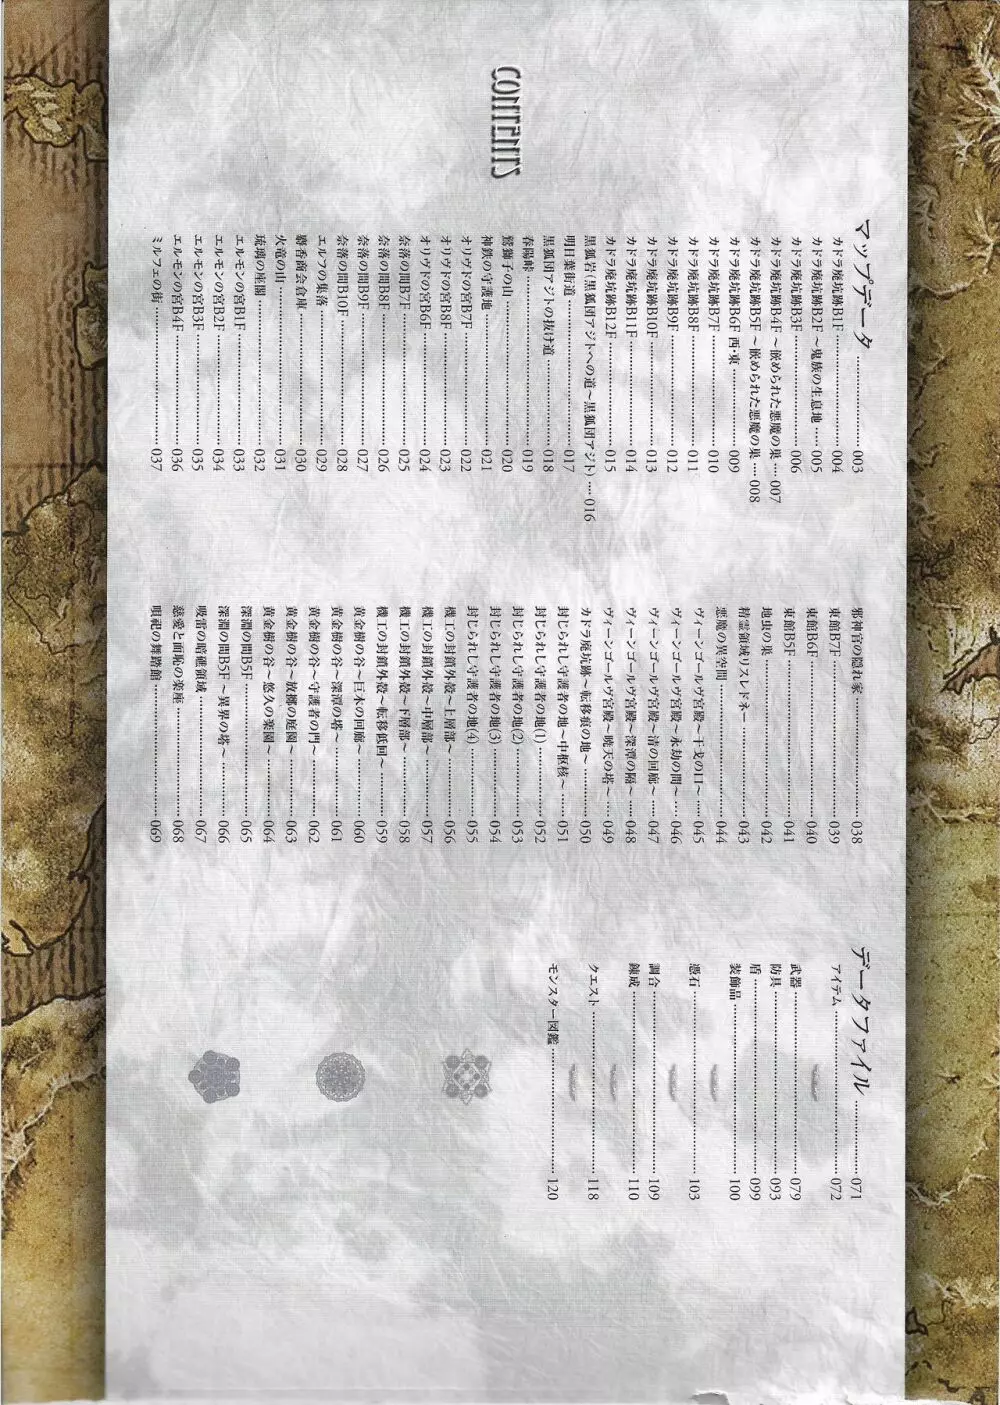 CONTENTS
マップデータ 003
カドラ廃坑跡B1F 004
カドラ廃坑跡B2F～鬼族の生息地 005
カドラ廃坑跡B3F 006
カドラ廃坑跡B4F～嵌められた悪魔の巣 007
カドラ廃坑跡B5F～嵌められた悪魔の巣 008
カドラ廃坑跡B6F 西・東 009
カドラ廃坑跡B7F 010
カドラ廃坑跡B8F 011
カドラ廃坑跡B9F 012
カドラ廃坑跡B10F 013
カドラ廃坑跡B11F 014
カドラ廃坑跡B12F 015
黒狐岩(黒狐団アジトへの道～黒狐団アジト) 016
明日葉街道 017
黒狐団アジトの抜け道 018
春陽峠 019
鷲獅子の山 020
神鉄の守護地 021
オリヴドの宮B7F 022
オリヴドの宮B8F 023
オリヴドの宮B6F 024
奈落の間B7F 025
奈落の間B8F 026
奈落の間B9F 027
奈落の間B10F 028
エルフの集落 029
麝香商会倉庫 030
火竜の山 031
琉璃の座閣 032
エルモンの宮B1F 033
エルモンの宮B2F 034
エルモンの宮B3F 035
エルモンの宮B4F 036
ミルフェの街 037
邪神官の隠れ家 038
東館B7F 039
東館B6F 040
東館B5F 041
地虫の巣 042
精霊領域リスレドネー 043
悪魔の異空間 044
ヴィーンゴールヴ宮殿～干戈の口～ 045
ヴィーンゴールヴ宮殿～永劫の間～ 046
ヴィーンゴールヴ宮殿～清の回廊～ 047
ヴィーンゴールヴ宮殿～深潭の隔～ 048
ヴィーンゴールヴ宮殿～暁天の塔～ 049
カドラ廃坑跡～転移痕の地～ 050
封じられし守護者の地～中枢核～ 051
封じられし守護者の地(1) 052
封じられし守護者の地(2) 053
封じられし守護者の地(3) 054
封じられし守護者の地(4) 055
機工の封鎖外殻～上層部～ 056
機工の封鎖外殻～中層部～ 057
機工の封鎖外殻～下層部～ 058
機工の封鎖外殻～転移低回～ 059
黄金樹の谷～巨木の回廊～ 060
黄金樹の谷～深潭の塔～ 061
黄金樹の谷～守護者の門～ 062
黄金樹の谷～放擲の庭園～ 063
黄金樹の谷～悠久の楽園～ 064
深淵の間B5F 065
深淵の間B5F～異界の塔～ 066
吸雷の暗礁領域 067
慈愛と面恥の楽座 068
呪祀の舞踏館 069
データファイル 071
アイテム 072
武器 079
防具 093
盾 099
装飾品 100
憑石 103
調合 109
錬成 110
クエスト 118
モンスター図鑑 120